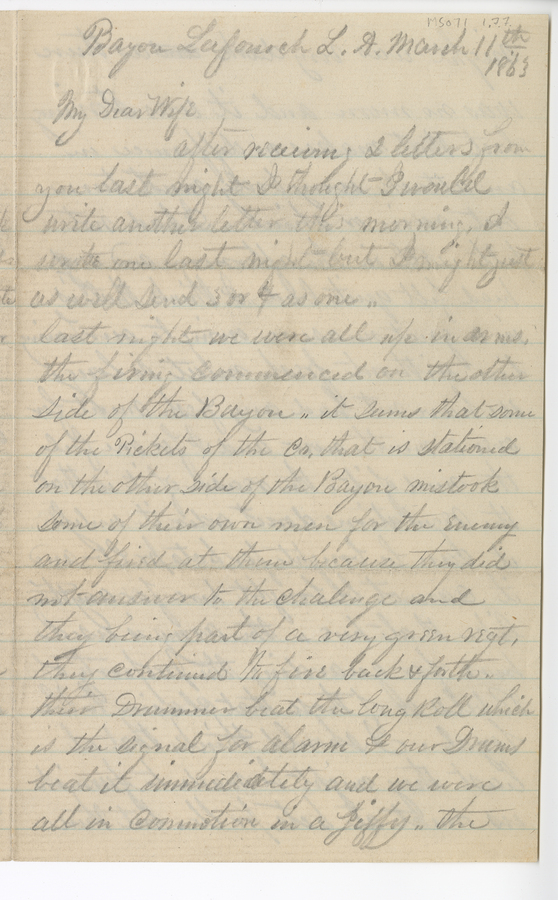 MS071 1.77
Bayou Lafourch L. A. March 11th
1863
My Dear Wife
after receiving 2 letters from
you last night I thought I would
write another letter this morning. I
wrote one last night but I might just
as well send 3 or 4 as one „
last night we were all up in arms.
the firing commenced on the other
side of the Bayou „ it seems that some
of the Pickets of the Co, that is stationed
on the other side of the Bayou mistook
some of their own men for the Enemy
and fired at them because they did
not answer to the chalenge and
they being part of a very green regt,
they continued to fire back & forth.
their Drummer beat the long Roll which
is the signal for alarm & our Drums
beat it immediately and we were
all in commotion in a Jiffy „ the